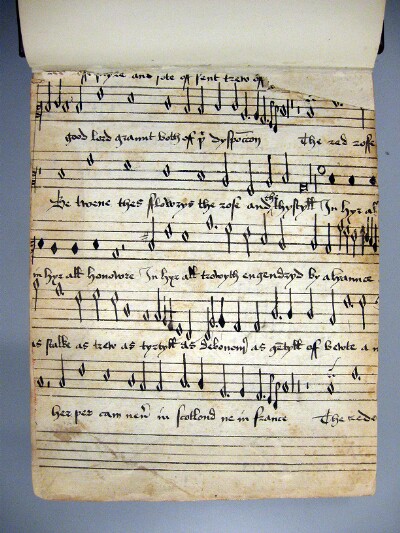 and ioie of sent trew of
good lord graunt both of yr dyspocon The red rose
Be twene thes flowrys the rose and thystyll In hyr all
in hyr all honowre In hyr all trowyth engendryd by alyaunce
as stalke as trew as tyrtyll as debonour as gentyll off bewte
her per cam nevr in scotlond ne in france The rede